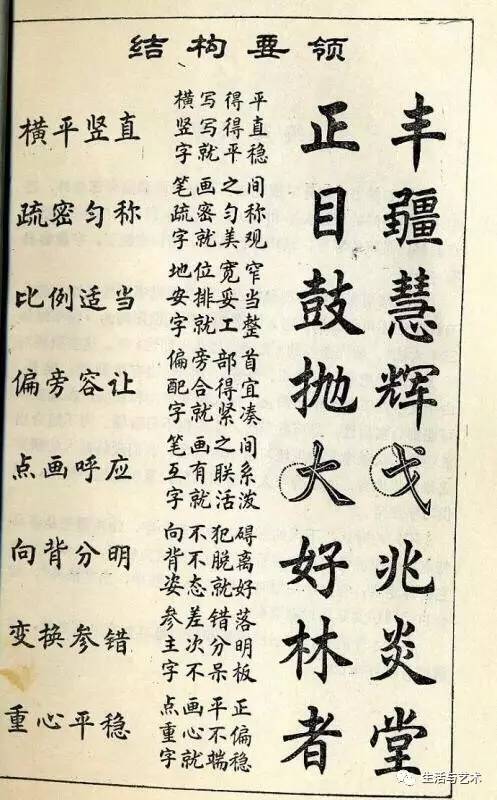 结构要领
横平竖直
横写得平
竖写得直
字就平稳
正 丰
疏密匀称
笔画之间
疏密匀称
字就美观
目 疆
比例适当
地位宽窄
安排妥当
字就工整
鼓 慧
偏旁容让
偏旁部首
配合得宜
字就紧凑
抛 辉
点画呼应
笔画之间
互有联系
字就活泼
大 戈
向背分明
向不犯碍
背不脱离
姿态就好
好 兆
变换参错
参差错落
主次分明
字不呆板
林 炎
重心平稳
点画平正
重心不偏
字就端稳
者 堂
生活与艺术